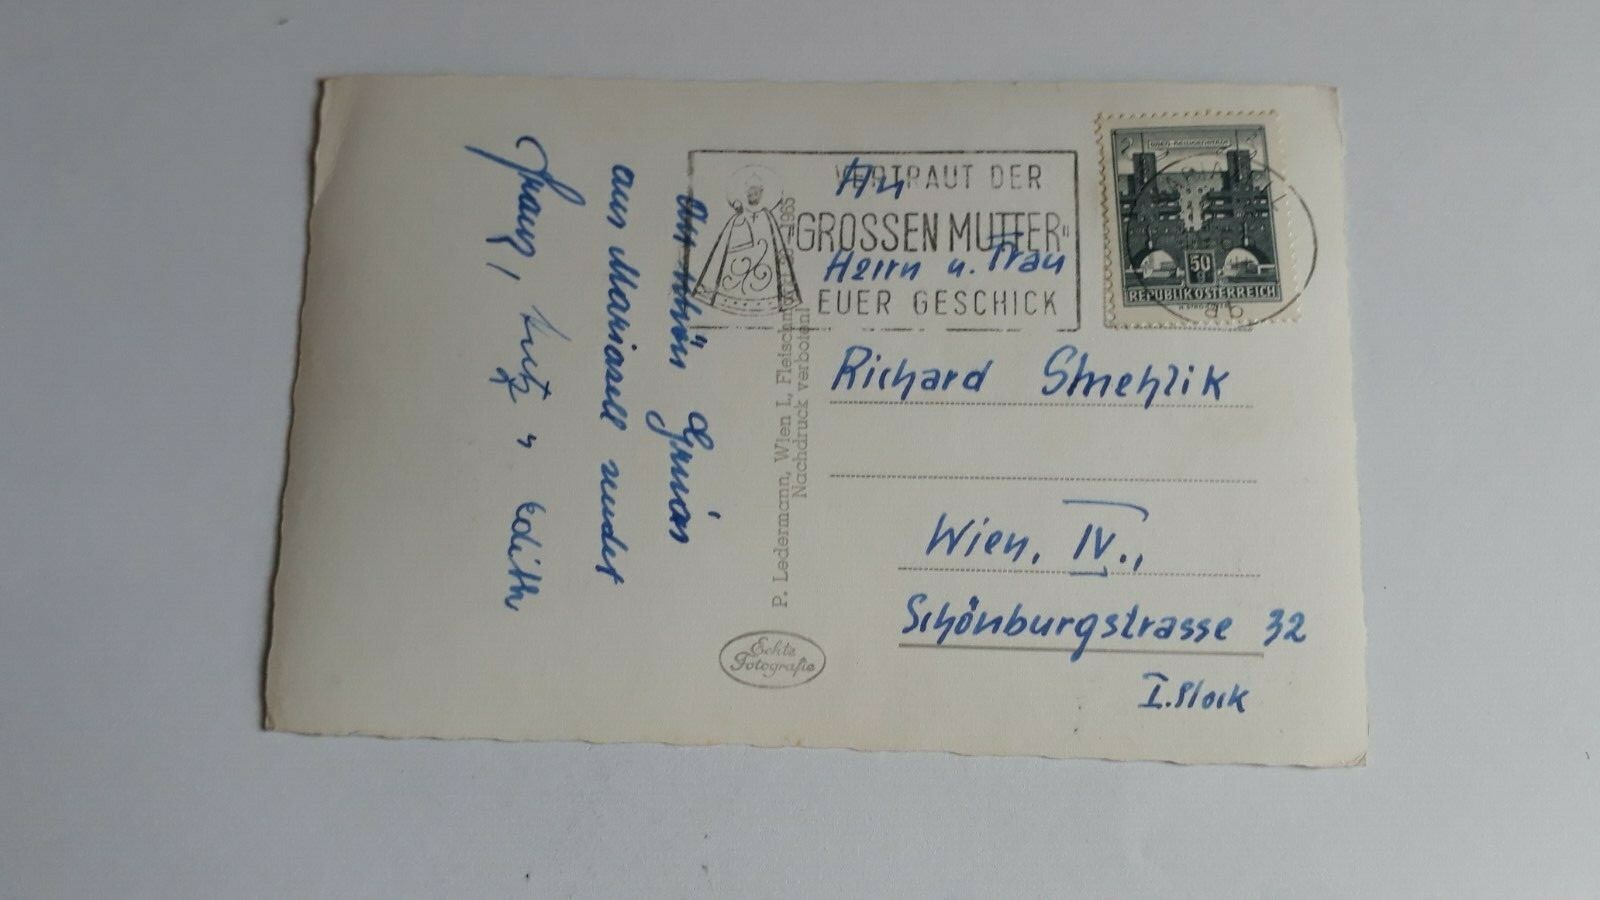 VERTRAUT DER
"GROSSEN MUTTER"
EUER GESCHICK
WIEN-HEILIGENSTADT
50 g
REPUBLIK ÖSTERREICH
An
Herrn u. Frau
Richard Smehlik
Wien, IV.,
Schönburgstrasse 32
I. Stock
aus Mariazell sendet
Franz, u. Edith
P. Ledermann, Wien I., Fleischm
Nachdruck verboten!
Echte
Fotografie